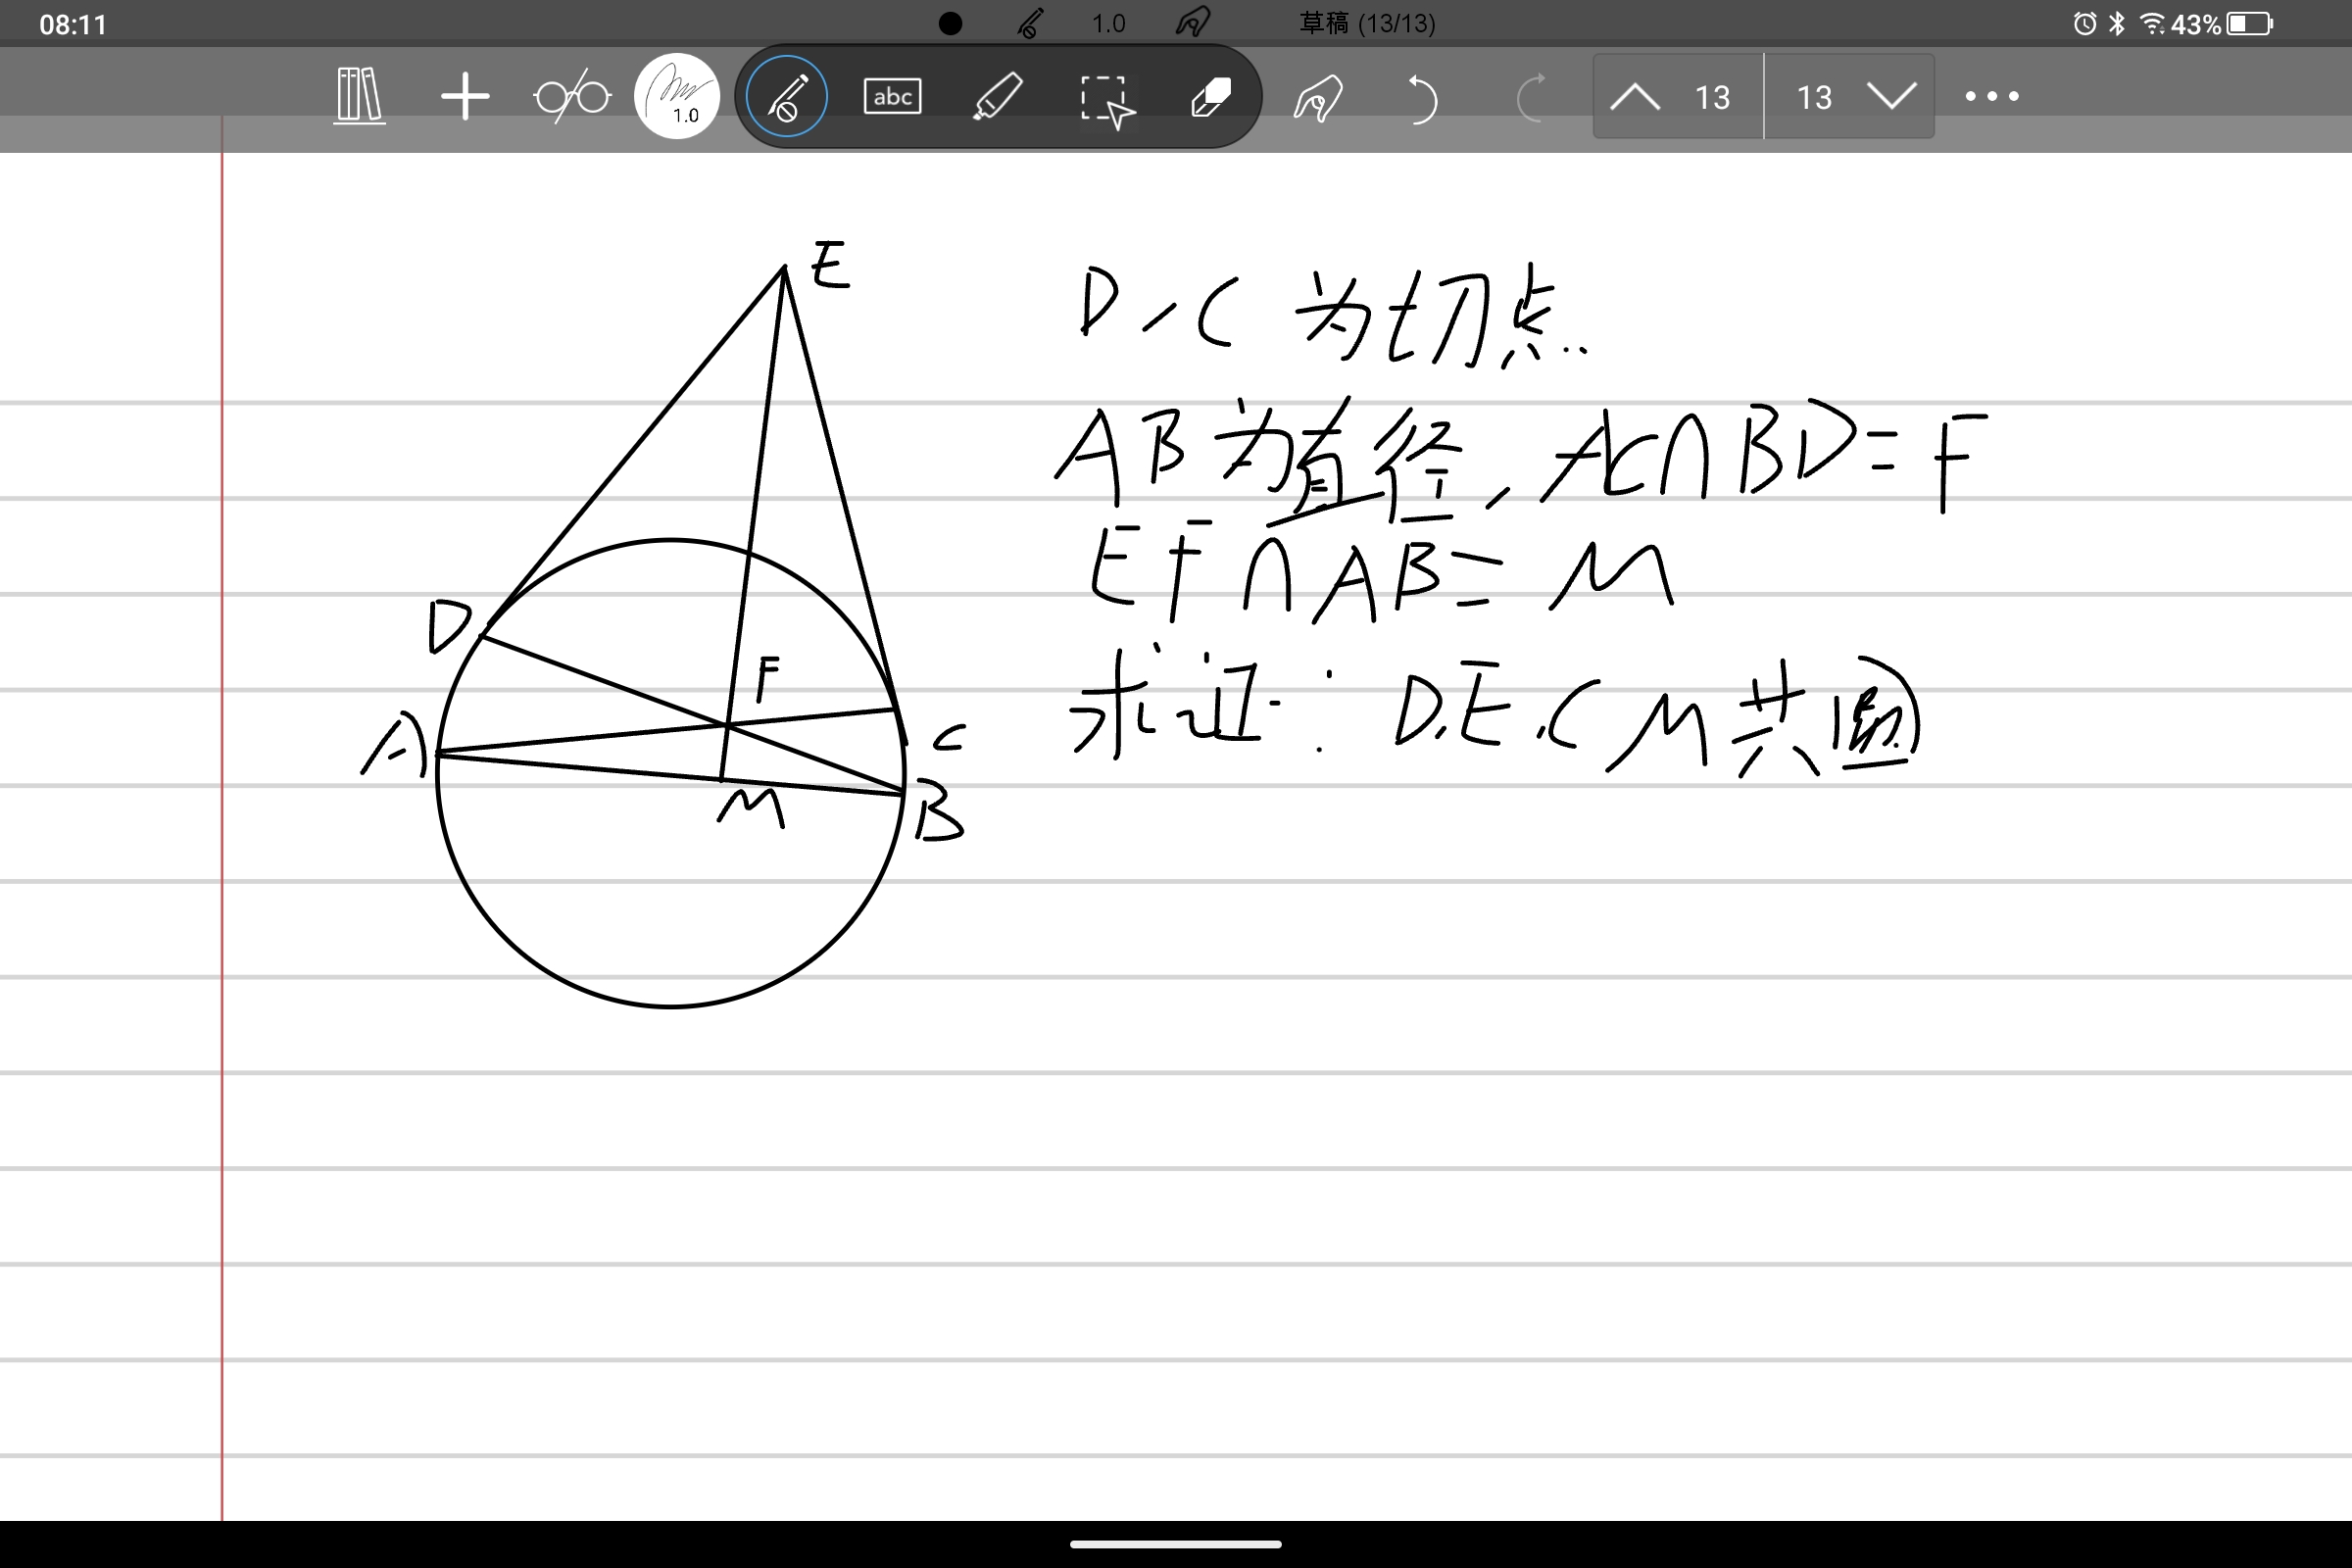 08:11
1.0
草稿 (13/13)
43%
1.0
abc
13
13
E
D、C 为切点..
AB为直径, AC∩BD=F
EF∩AB=M
求证: D,E,C M共圆
D
F
A
C
M
B